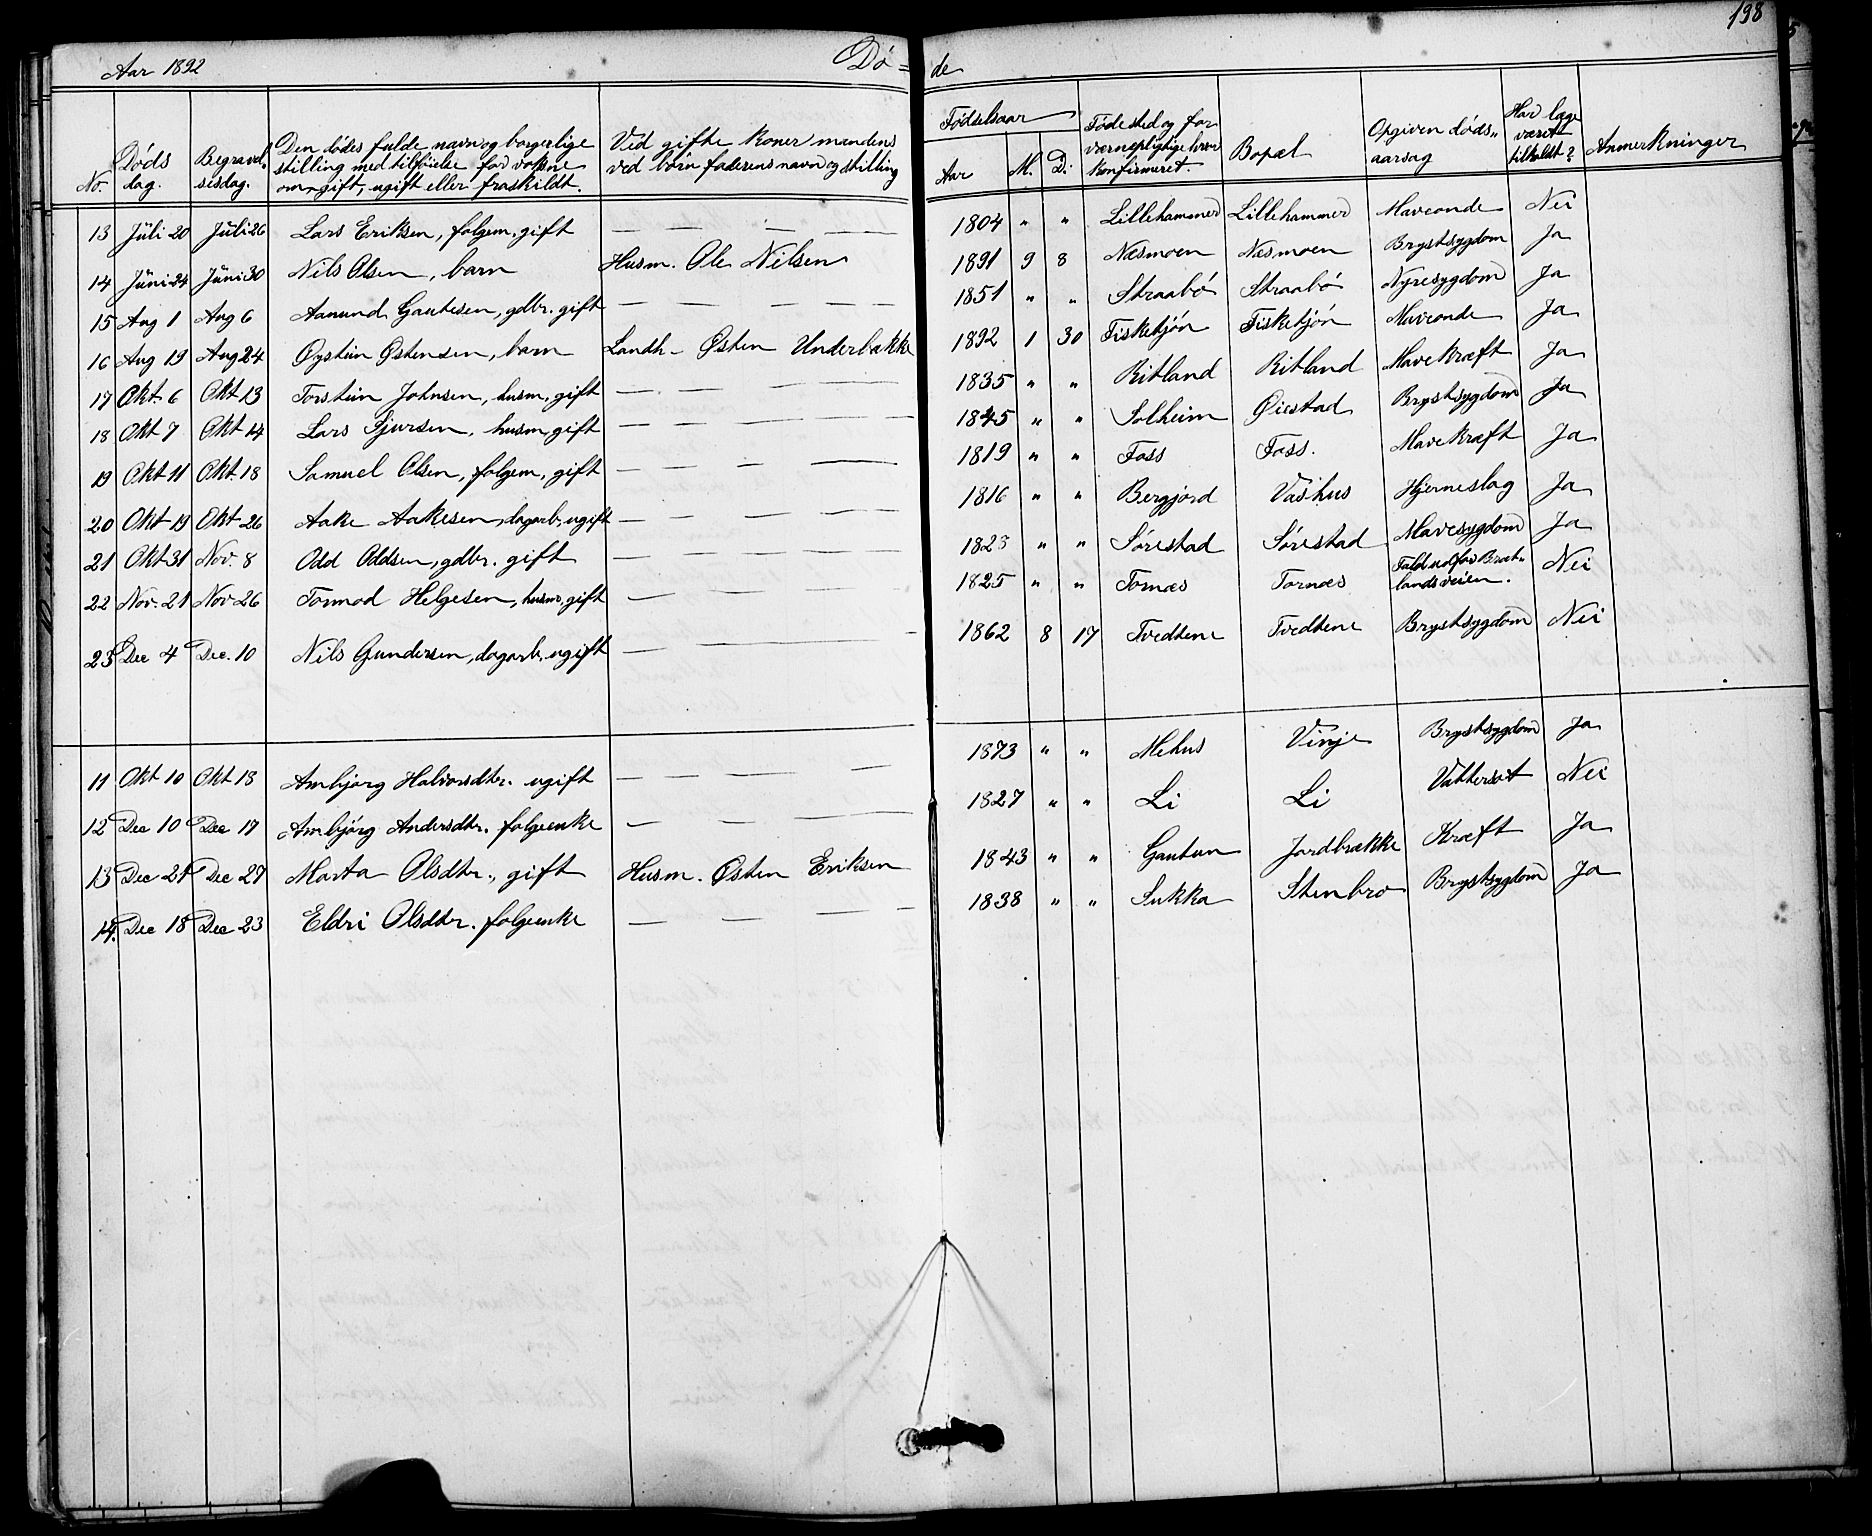 Aar 1892 Dø= de 198
No. Døds dag. Begravelsesdag. Den dødes fulde navn og borgerlige stilling med tilføielse for voksne om gift, ugift eller fraskildt. Ved gifte koner mandens ved børn faderens navn og stilling Fødselsaar Aar M. D. Fødested og for værnepligtige hvor konfirmeret. Bopæl Opgiven dødsaarsag Har læge været tilkaldt? Anmerkninger
13 Juli 20 Juli 26 Lars Eriksen, folgem. gift — — — — 1804 " " Lillehammer Lillehammer Maveonde Nei
14 Juni 24 Juni 30 Nils Olsen, barn Husm. Ole Nilsen 1891 9 8 Næsmoen Næsmoen Brystsygdom Ja
15 Aug 1 Aug 6 Aanund Gautesen, gdbr. gift — — — — 1851 " " Straabø Straabø Nyresygdom Ja
16 Aug 19 Aug 24 Øystein Østensen, barn Landh. Østen Underbakke 1892 1 30 Fisketjøn Fisketjøn Maveonde Ja
17 Okt. 6 Okt 13 Torstein Johnsen, husm, gift — — — — 1835 " " Ritland Ritland Mavekræft Ja
18 Okt 7 Okt 14 Lars Sjursen, husm, gift — — — — 1845 " " Solheim Øiestad Brystsygdom Ja
19 Okt 11 Okt. 18 Samuel Olsen, folgem, gift — — — — 1819 " " Foss Foss. Mavekræft Ja
20 Okt 19 Okt 26 Aake Aakesen, dagarb, ugift — — — — 1816 " " Bergjord Vashus Hjerneslag Ja
21 Okt 31 Nov. 8 Odd Oddsen, gdbr. gift — — — — 1823 " " Sørestad Sørestad Mavesygdom Ja
22 Nov. 21 Nov 26 Tormod Helgesen, husm, gift — — — — 1825 " " Tornæs Tornæs Fald udfor Bratlandsveien. Nei
23 Dec 4 Dec. 10 Nils Gundersen, dagarb, ugift — — — — 1862 8 17 Tvedtene Tvedtene Brystsygdom Nei
11 Okt 10 Okt 18 Ambjørg Halvorsdtr. ugift — — — — 1873 " " Mehus Vinje Brystsygdom Ja
12 Dec 10 Dec 17 Ambjørg Andersdtr. folgeenke — — — — 1827 " " Li Li Vattersot Nei
13 Dec 21 Dec 27 Marta Olsdtr., gift Husm. Østen Eriksen 1843 " " Gautun Jordbrække Kræft Ja
14. Dec 18 Dec 23 Eldri Olsdtr. folgeenke — — — — 1838 " " Sukka Stenbro Brystsygdom Ja